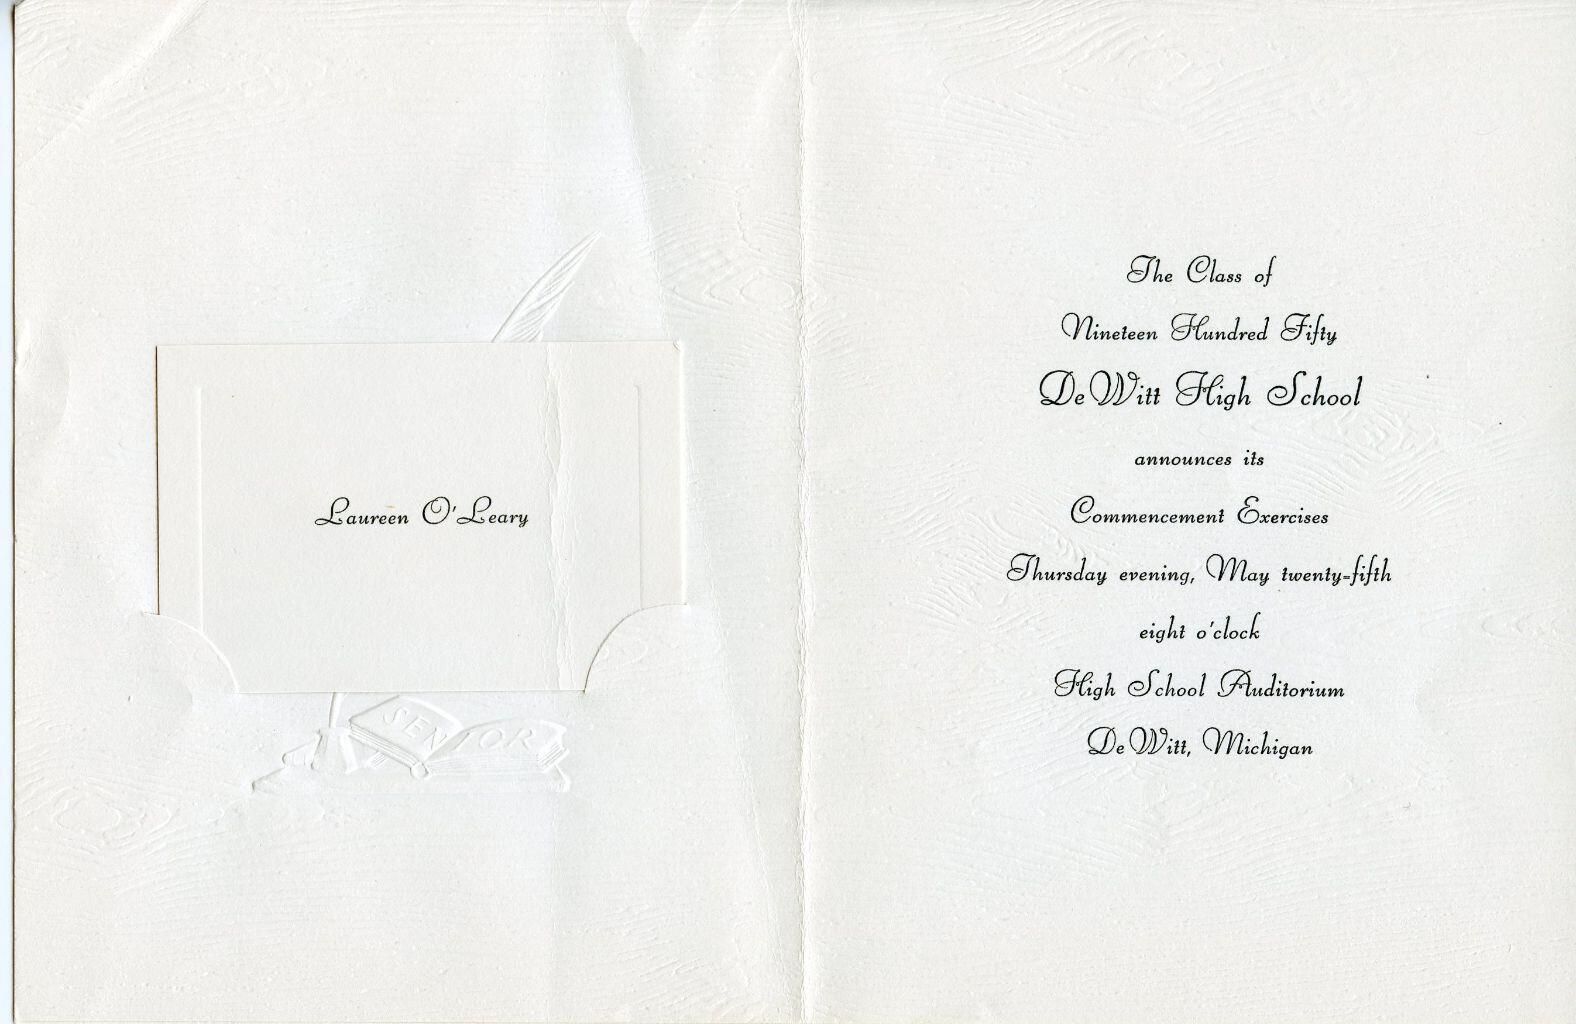 Laureen O'Leary
SENIOR
The Class of
Nineteen Hundred Fifty
DeWitt High School
announces its
Commencement Exercises
Thursday evening, May twenty-fifth
eight o'clock
High School Auditorium
DeWitt, Michigan